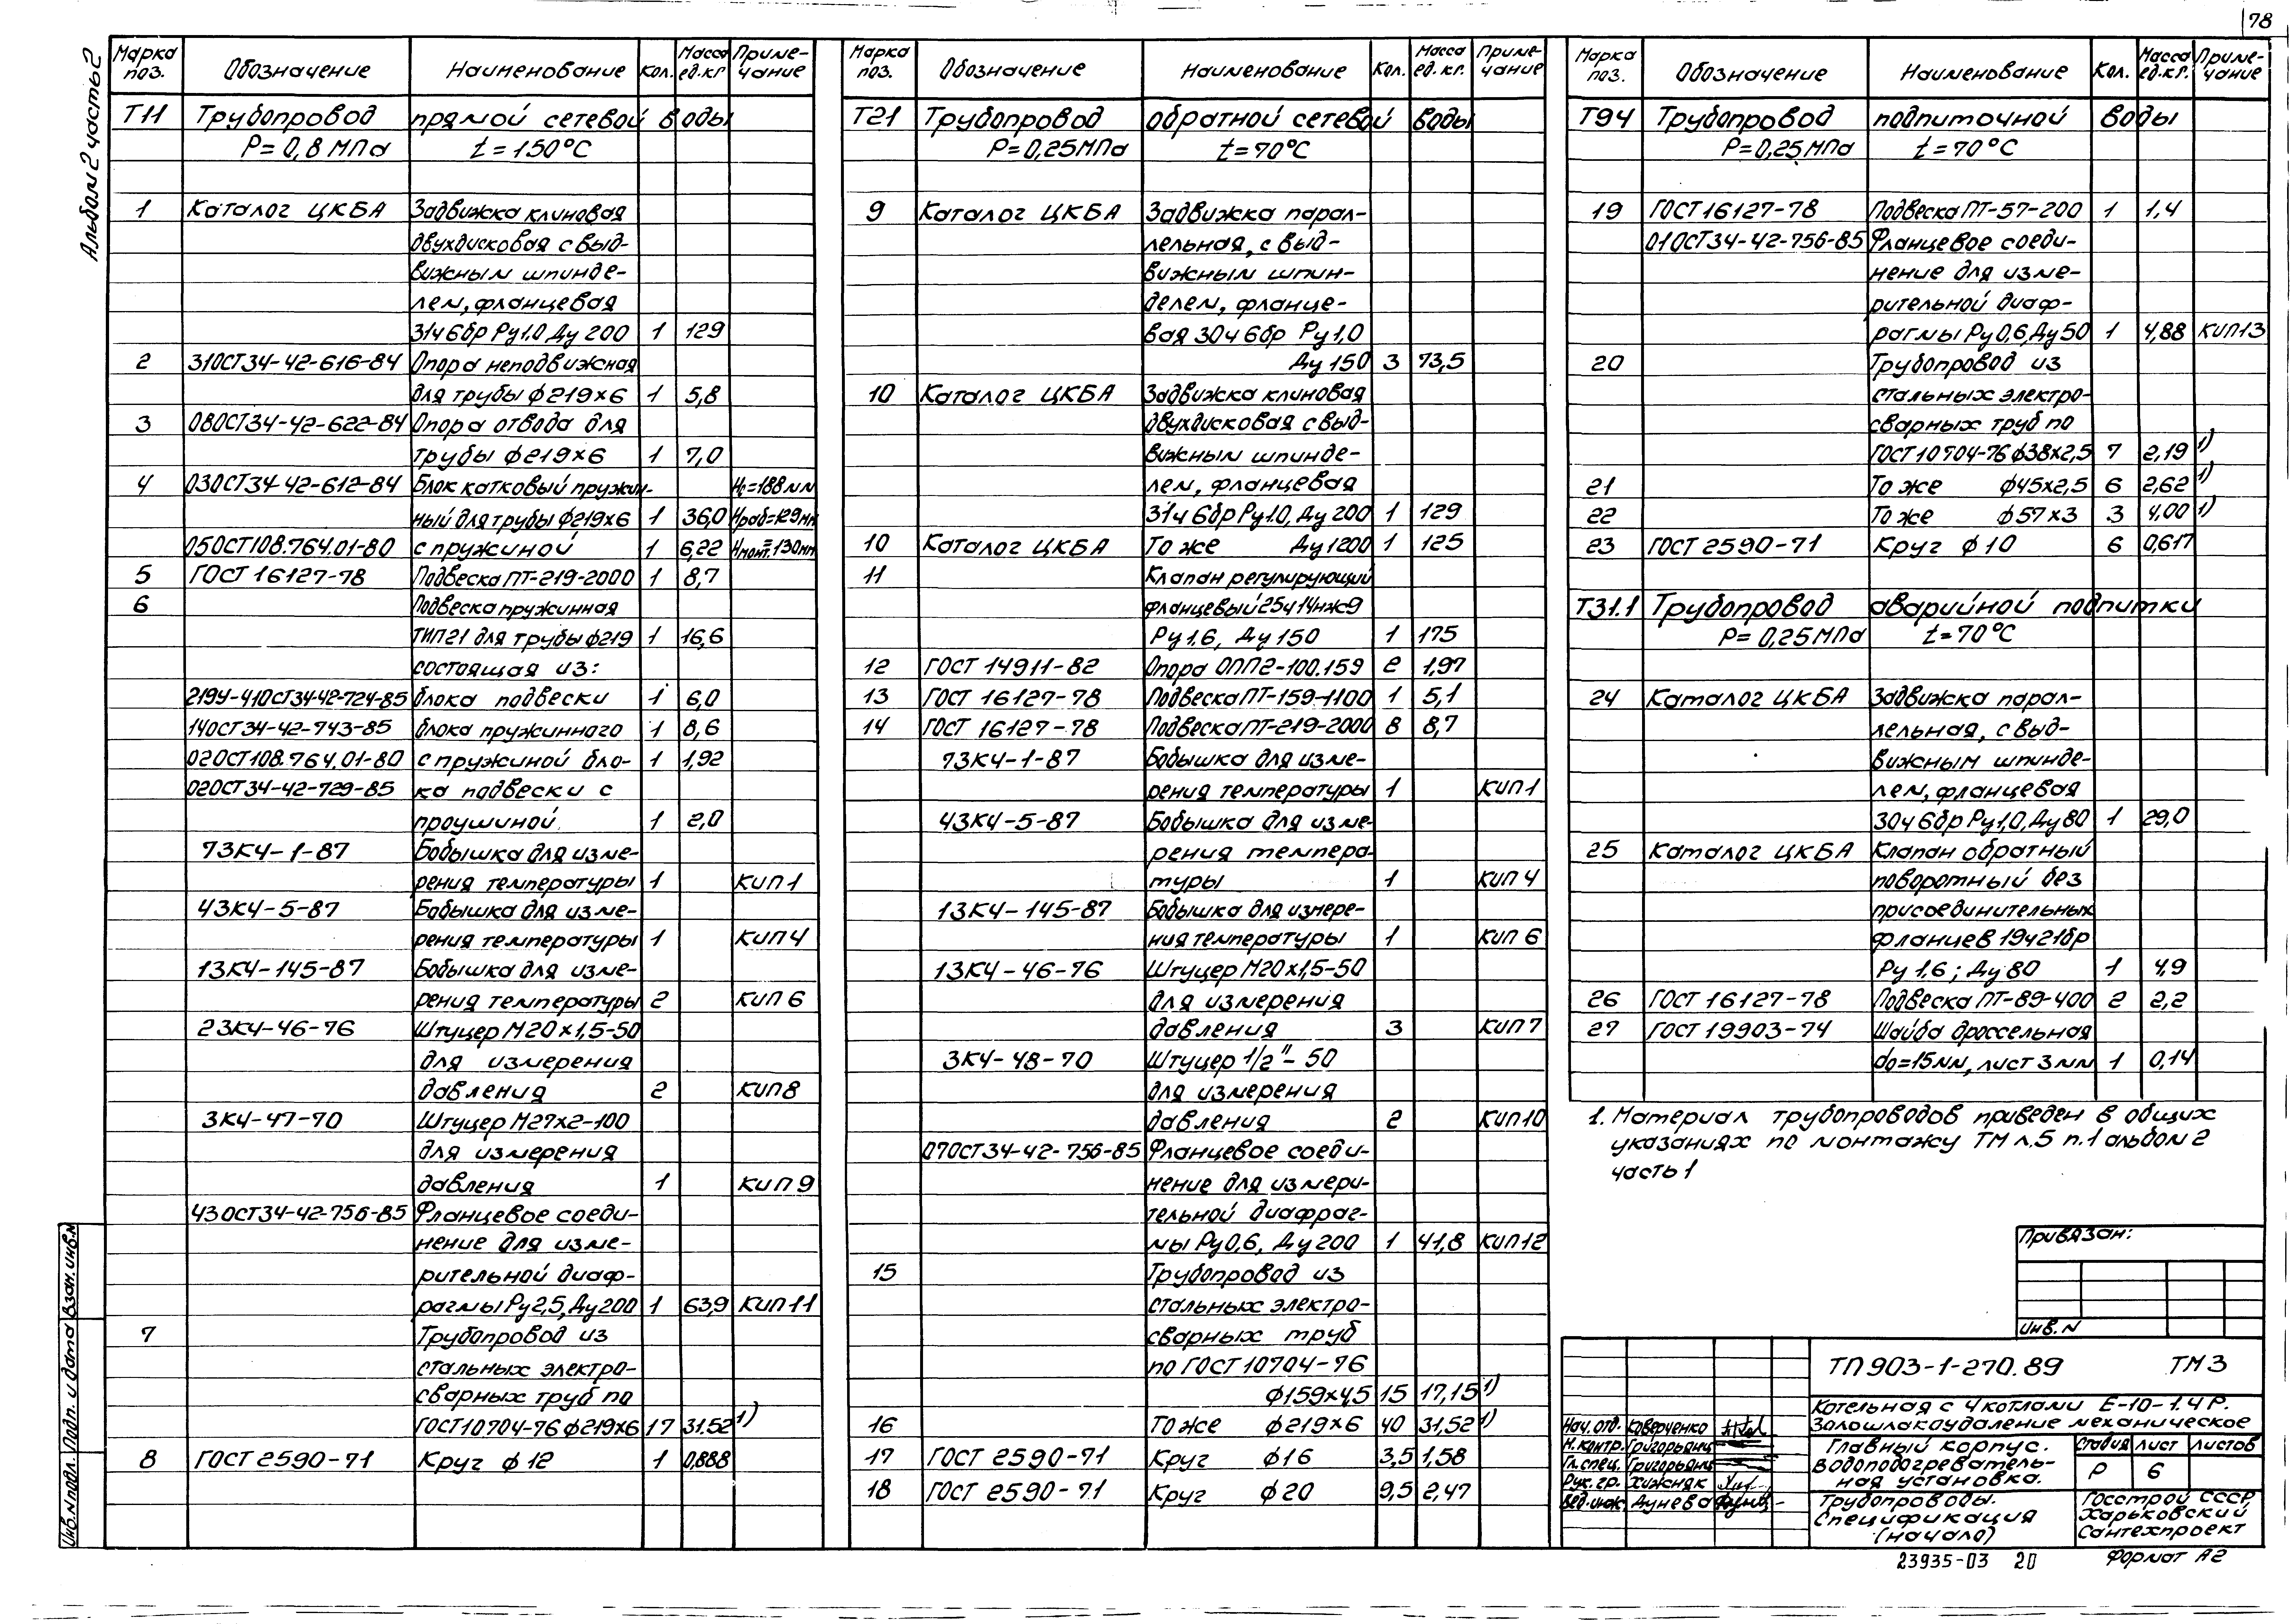 78
Альбом 2 часть 2
Марка поз. Обозначение Наименование Кол. Масса ед.кг Примечание
Т11 Трубопровод прямой сетевой воды
Р=0,8 МПа t=150°С
1 Каталог ЦКБА Задвижка клиновая
двухдисковая с выд-
вижным шпинде-
лем, фланцевая
31ч6бр Ру1,0 Ду 200 1 129
2 31ОСТ34-42-616-84 Опора неподвижная
для трубы ф219х6 1 5,8
3 08ОСТ34-42-622-84 Опора отвода для
трубы ф219х6 1 7,0
4 03ОСТ34-42-612-84 Блок катковый пружин- =188мм
ный для трубы ф219х6 1 36,0 Нраб=129мм
05ОСТ108.764.01-80 с пружиной 1 6,22 Нмонт.=130мм
5 ГОСТ 16127-78 Подвеска ПТ-219-2000 1 8,7
6 Подвеска пружинная
ТИП21 для трубы ф219 1 16,6
состоящая из:
219У-41ОСТ34-42-724-85 блока подвески 1 6,0
14ОСТ34-42-743-85 блока пружинного 1 8,6
02ОСТ108.764.01-80 с пружиной бло- 1 1,92
02ОСТ34-42-729-85 ка подвески с
проушиной 1 2,0
73К4-1-87 Бобышка для изме-
рения температуры 1 КИП1
43К4-5-87 Бобышка для изме-
рения температуры 1 КИП4
13К4-145-87 Бобышка для изме-
рения температуры 2 КИП6
23К4-46-76 Штуцер М20х1,5-50
для измерения
давления 2 КИП8
3К4-47-70 Штуцер М27х2-100
для измерения
давления 1 КИП9
43ОСТ34-42-756-85 Фланцевое соеди-
нение для изме-
рительной диаф-
рагмы Ру2,5, Ду200 1 63,9 КИП11
7 Трубопровод из
стальных электро-
сварных труб по
ГОСТ10704-76 ф219х6 17 31.52 1)
8 ГОСТ 2590-71 Круг ф12 1 0,888
Марка поз. Обозначение Наименование Кол. Масса ед.кг. Примечание
Т21 Трубопровод обратной сетевой воды
Р=0,25МПа t=70°С
9 Каталог ЦКБА Задвижка парал-
лельная, с выд-
вижным шпин-
делем, фланце-
вая 30ч6бр Ру1,0
Ду150 3 73,5
10 Каталог ЦКБА Задвижка клиновая
двухдисковая с выд-
вижным шпинде-
лем, фланцевая
31ч6бр Ру1.0, Ду200 1 129
10 Каталог ЦКБА То же Ду1200 1 125
11 Клапан регулирующий
фланцевый25ч14нж9
Ру1.6, Ду150 1 175
12 ГОСТ 14911-82 Опора ОПП2-100.159 2 1,97
13 ГОСТ 16127-78 Подвеска ПТ-159-1100 1 5,1
14 ГОСТ 16127-78 Подвеска ПТ-219-2000 8 8,7
73К4-1-87 Бобышка для изме-
рения температуры 1 КИП1
43К4-5-87 Бобышка для изме-
рения темпера-
туры 1 КИП4
13К4-145-87 Бобышка для измере-
ния температуры 1 КИП6
13К4-46-76 Штуцер М20х1,5-50
для измерения
давления 3 КИП7
3К4-48-70 Штуцер 1/2"-50
для измерения
давления 2 КИП10
07ОСТ34-42-756-85 Фланцевое соеди-
нение для измери-
тельной диафраг-
мы Ру0,6, Ду200 1 41,8 КИП12
15 Трубопровод из
стальных электро-
сварных труб
по ГОСТ10704-76
ф159х4,5 15 17,15 1)
16 То же ф219х6 40 31,52 1)
17 ГОСТ 2590-71 Круг ф16 3,5 1,58
18 ГОСТ 2590-71 Круг ф20 9,5 2,47
Марка поз. Обозначение Наименование Кол. Масса ед.кг. Примечание
Т94 Трубопровод подпиточной воды
Р=0,25МПа t=70°С
19 ГОСТ16127-78 Подвеска ПТ-57-200 1 1,4
01ОСТ34-42-756-85 Фланцевое соеди-
нение для изме-
рительной диаф-
рагмы Ру0,6,Ду50 1 4,88 КИП13
20 Трубопровод из
стальных электро-
сварных труб по
ГОСТ10704-76 ф38х2,5 7 2,19 1)
21 То же ф45х2,5 6 2,62 1)
22 То же ф57х3 3 4,00 1)
23 ГОСТ 2590-71 Круг ф10 6 0,617
Т31.1 Трубопровод аварийной подпитки
Р=0,25МПа t=70°С
24 Каталог ЦКБА Задвижка парал-
лельная, с выд-
вижным шпинде-
лем, фланцевая
30ч6бр Ру1,0, Ду80 1 29,0
25 Каталог ЦКБА Клапан обратный
поворотный без
присоединительных
фланцев 19ч21бр
Ру1,6; Ду80 1 4,9
26 ГОСТ 16127-78 Подвеска ПТ-89-400 2 2,2
27 ГОСТ 19903-74 Шайба дроссельная
do=15мм, лист 3мм 1 0,14
1. Материал трубопроводов приведен в общих
указаниях по монтажу ТМ л.5 п.1 альбом 2
часть 1
Привязан:
Инв.N
ТП903-1-270.89 ТМ3
Котельная с 4 котлами Е-10-1.4Р.
Золошлакоудаление механическое
Нач.отд. Коверченко
Н.контр. Григорьянц
Гл.спец. Григорьянц
Рук.гр. Хижняк
Вед.инж. Дунева
Главный корпус.
Водоподогреватель-
ная установка.
Стадия Лист Листов
Р 6
Трубопроводы.
Спецификация
(начало)
Госстрой СССР
Харьковский
Сантехпроект
23935-03 20 Формат А2
Инв.Nподл. Подп. и дата Взам.инв.N